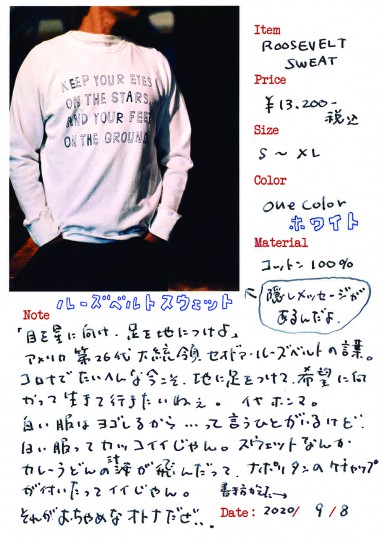 KEEP YOUR EYES
ON THE STARS,
AND YOUR FEET
ON THE GROUND.
Item
ROOSEVELT
SWEAT
Price
¥13.200-
税込
Size
S～XL
Color
one color
ホワイト
Material
コットン100%
隠しメッセージが
あるんだよ
ルーズベルトスウェット
Note
「目を星に向け、足を地につけよ」
アメリカ第26代大統領、セオドア・ルーズベルトの言葉。
コロナでたいへんな今こそ、地に足をつけて、希望に向
かって生きて行きたいねぇ。イヤホンマ。
白い服はヨゴレるから…って言うひとがいるけど、
白い服ってカッコイイじゃん。スウェットなんか
カレーうどんの汁が飛んだって、ナポリタンのケチャップ
が付いたってイイじゃん。
それがおちゃめなオトナだぜ…
Date: 2020/ 9/8